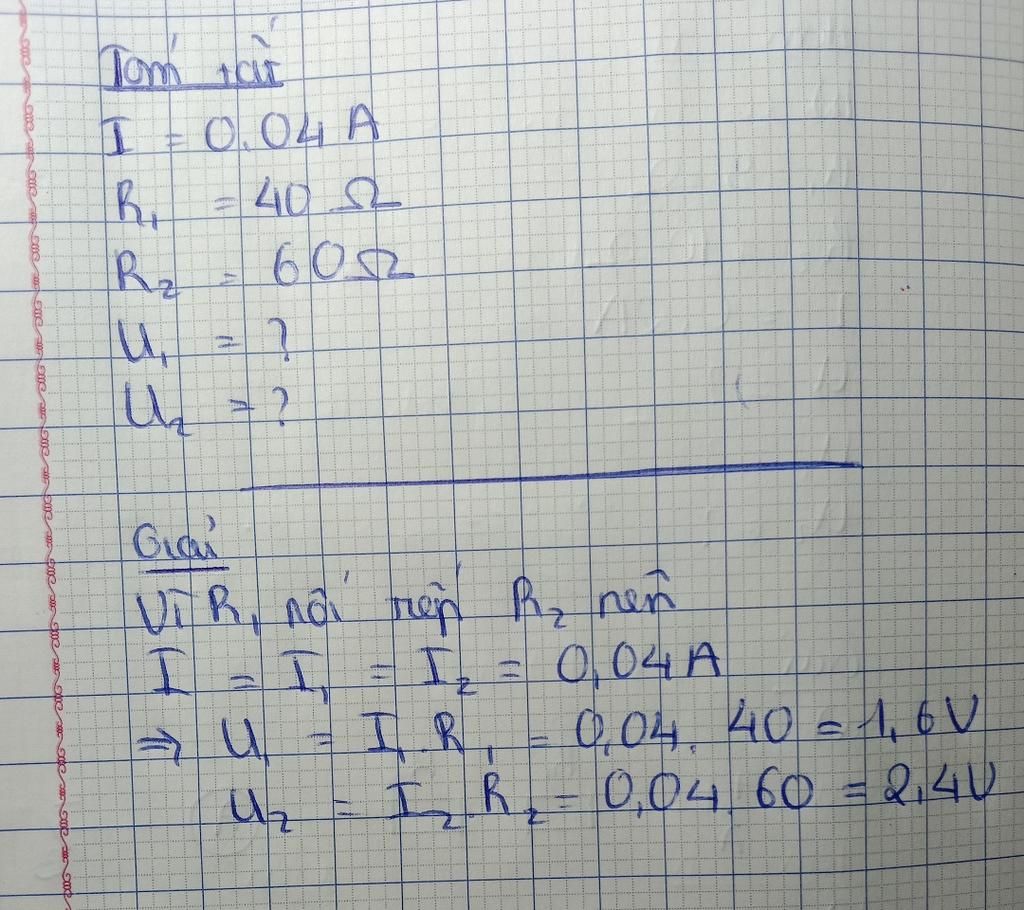 Tóm tắt
I = 0.04 A
R₁ = 40 Ω
R₂ = 60 Ω
U₁ = ?
U₂ = ?
Giải
Vì R₁ nối tiếp R₂ nên
I = I₁ = I₂ = 0,04 A
⇒ U₁ = I₁.R₁ = 0,04. 40 = 1,6V
U₂ = I₂.R₂ = 0,04.60 = 2,4V